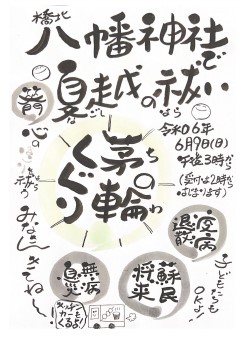 橋北
八幡神社で
夏越の祓い
なごし
はら
令和06年
6月9日(日)
午后3時から
(受付は2時から
はじまります)
茅の輪
ちのわ
くぐり
心の
疫病
退散
蘇民
将来
無病
息災
子どもたちも
OKよ!
みなさんきてね〜
キッチン
カーも
くるよ!